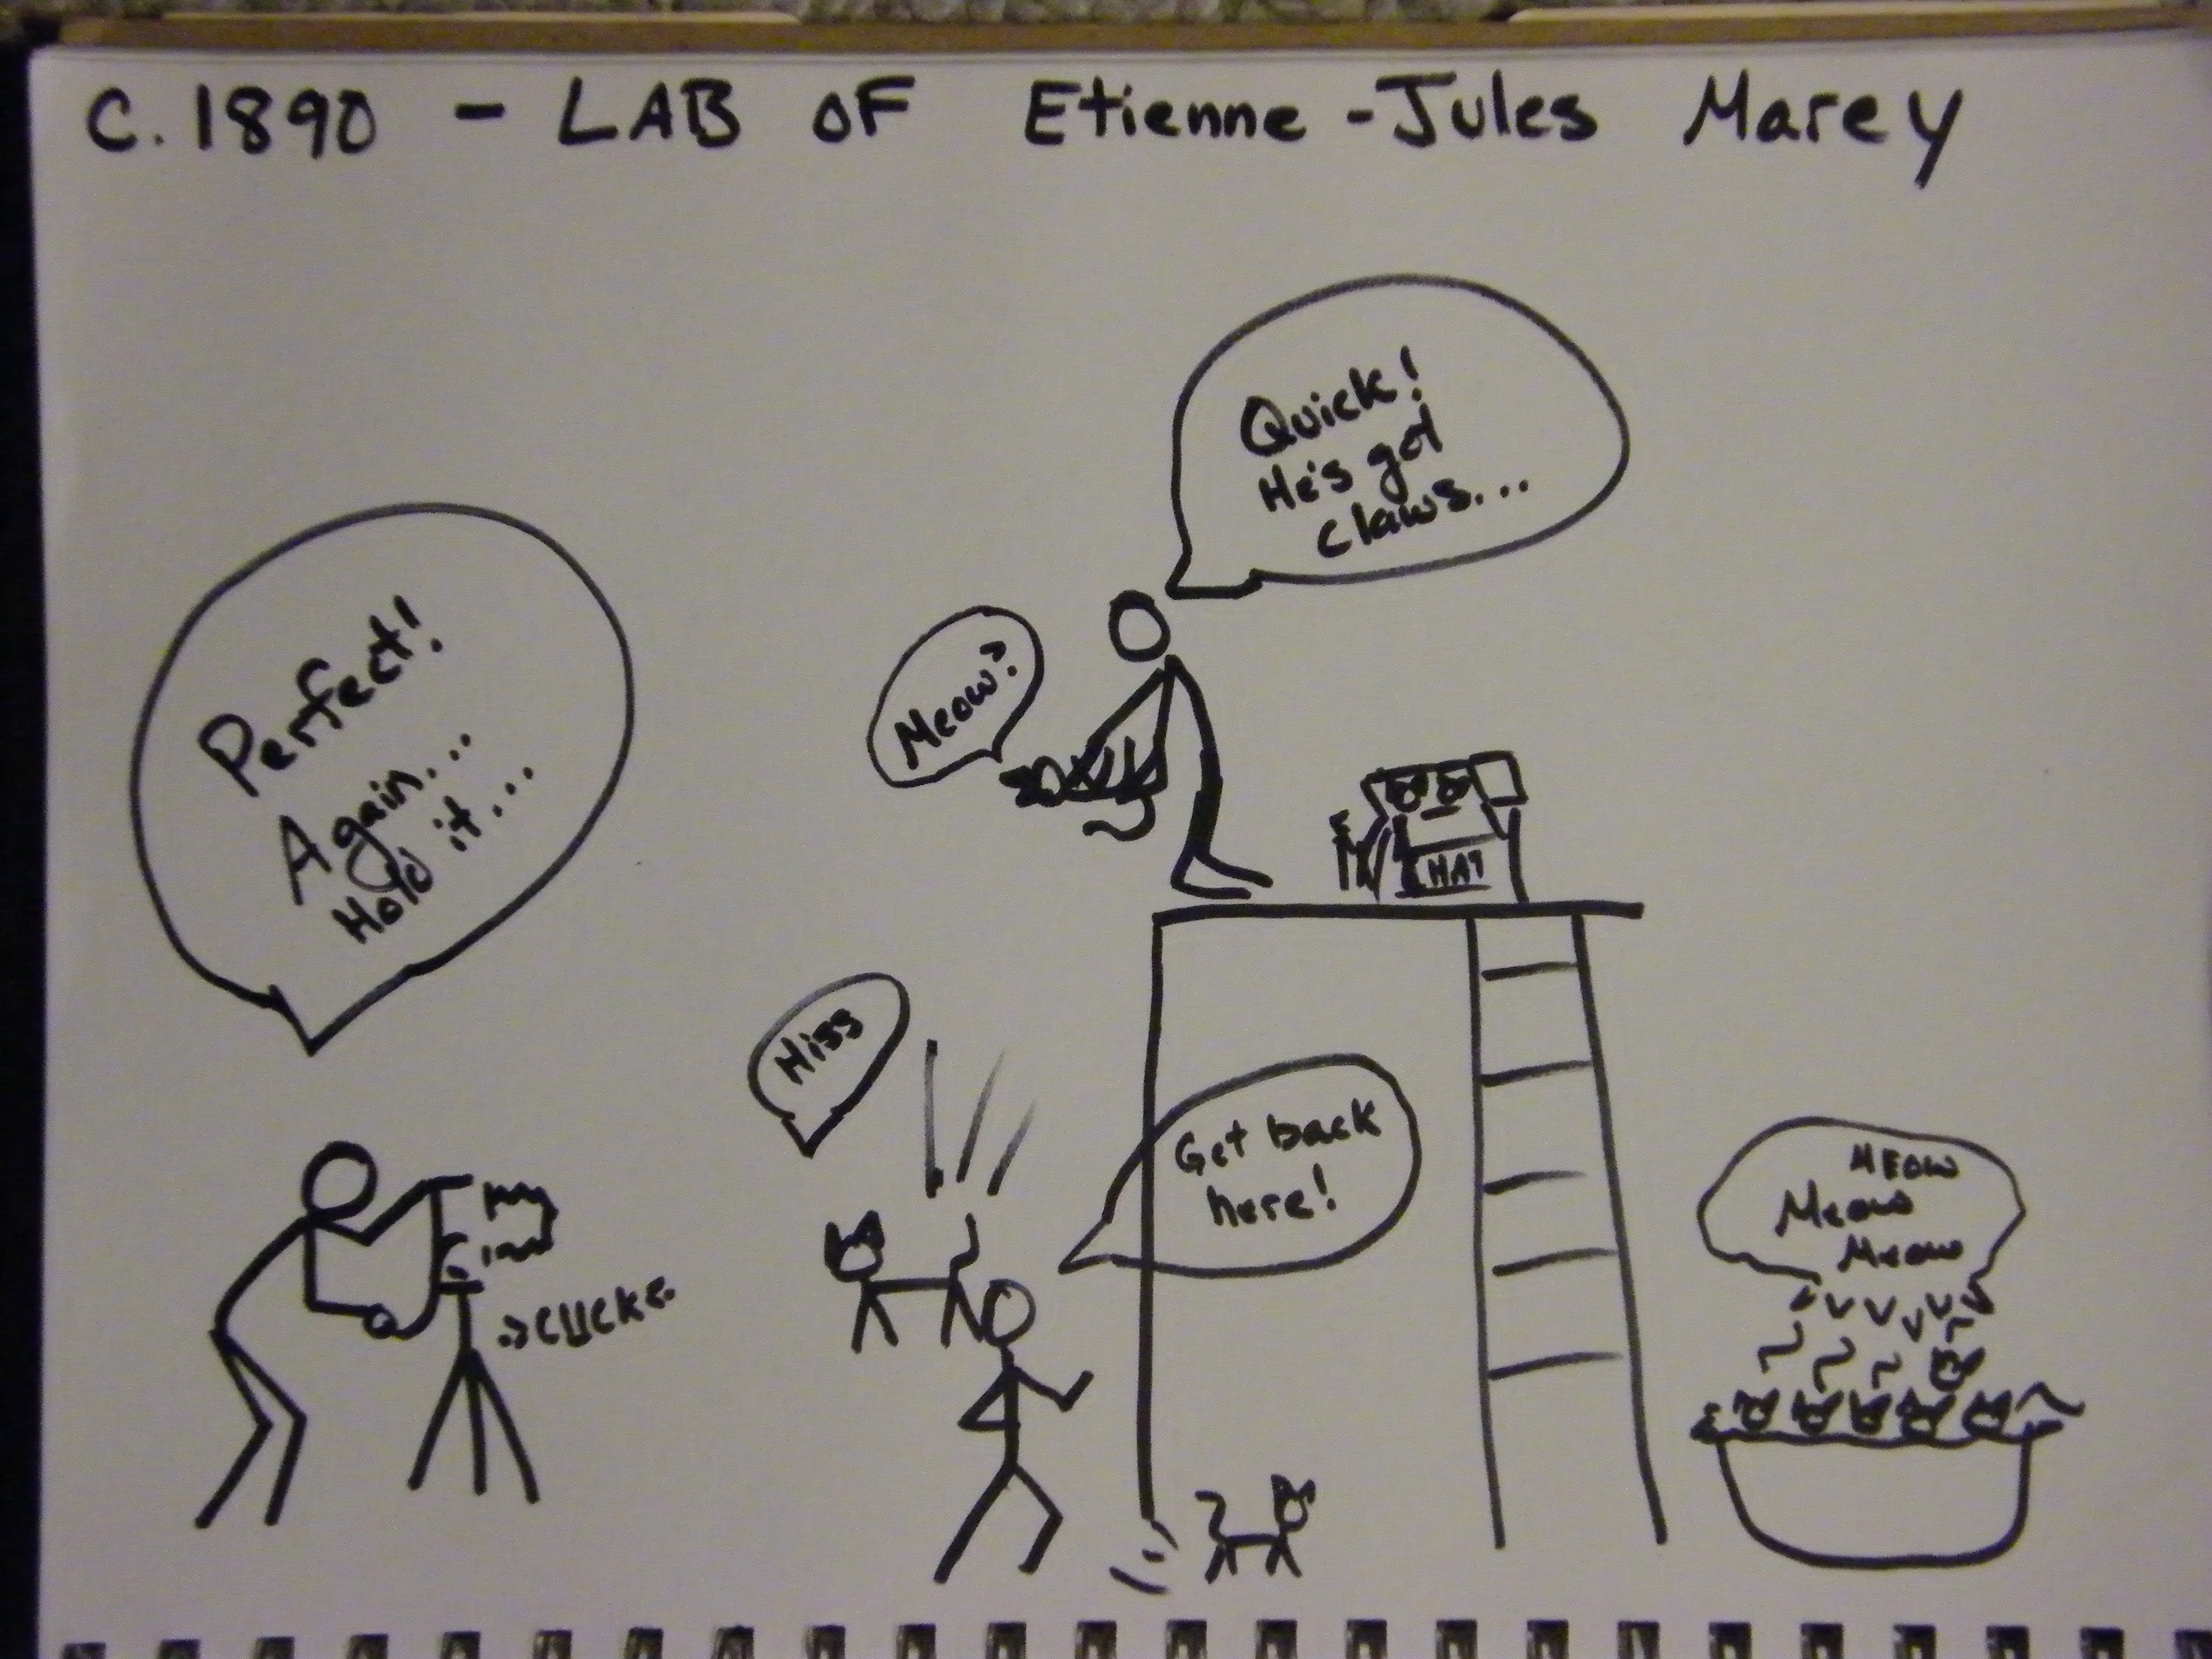 C. 1890 - LAB OF Etienne-Jules Marey
Quick!
He's got
claws...
Perfect!
Again...
Hold it...
Meow?
HAT
Hiss
Get back
here!
CLICK
MEOW
Meow
Meow